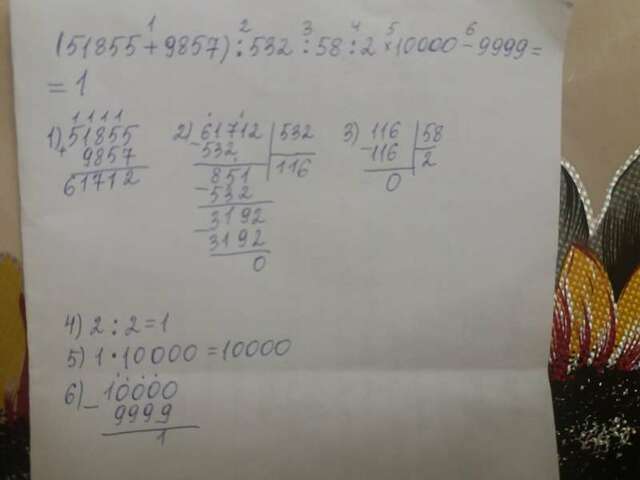 1 2 3 4 5 6
(51855+9857):532:58:2×10000-9999=
=1
1) 1111
+51855
9857
61712
2) -61712 | 532
532 | 116
-851
532
-3192
3192
0
3) -116 | 58
116 | 2
0
4) 2:2=1
5) 1·10000=10000
6) -10000
9999
1